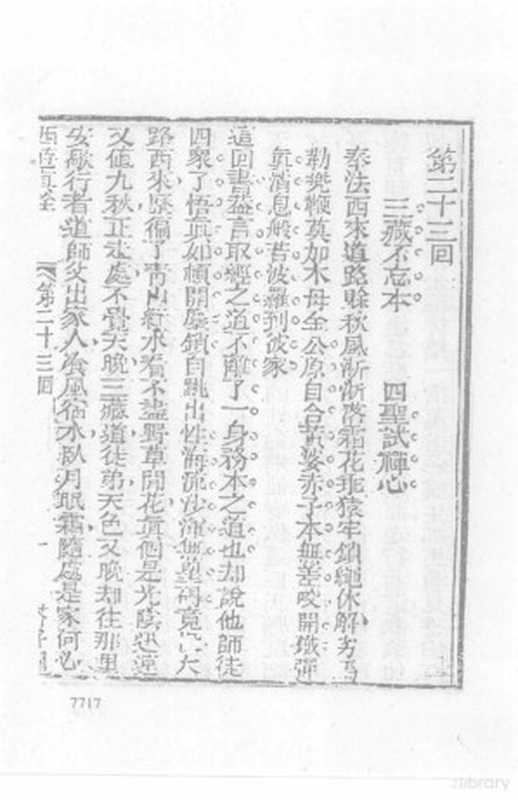 第二十三回
三藏不忘本　四聖試禪心
奉法西來道路賒秋風淅淅落霜花乖猿牢鎖繩休解劣馬
勤兜鞭莫加木母金公原自合黃婆赤子本無差咬開鐵彈
真消息般若波羅到彼家
這回書蓋言取經之道不離了一身務本之道也却說他師徒
四衆了悟真如頓開塵鎖自跳出性海流沙渾無罣碍竟 大
路西來歷徧了青山綠水看不盡野草閒花真個是光陰迅速
又值九秋 正走處不覺天晚三藏道徒弟天色又晚却往那里
安歇行者道師父出家人餐風宿水臥月眠霜隨處是家何必
西 真詮　第二十三回　一
7717
library